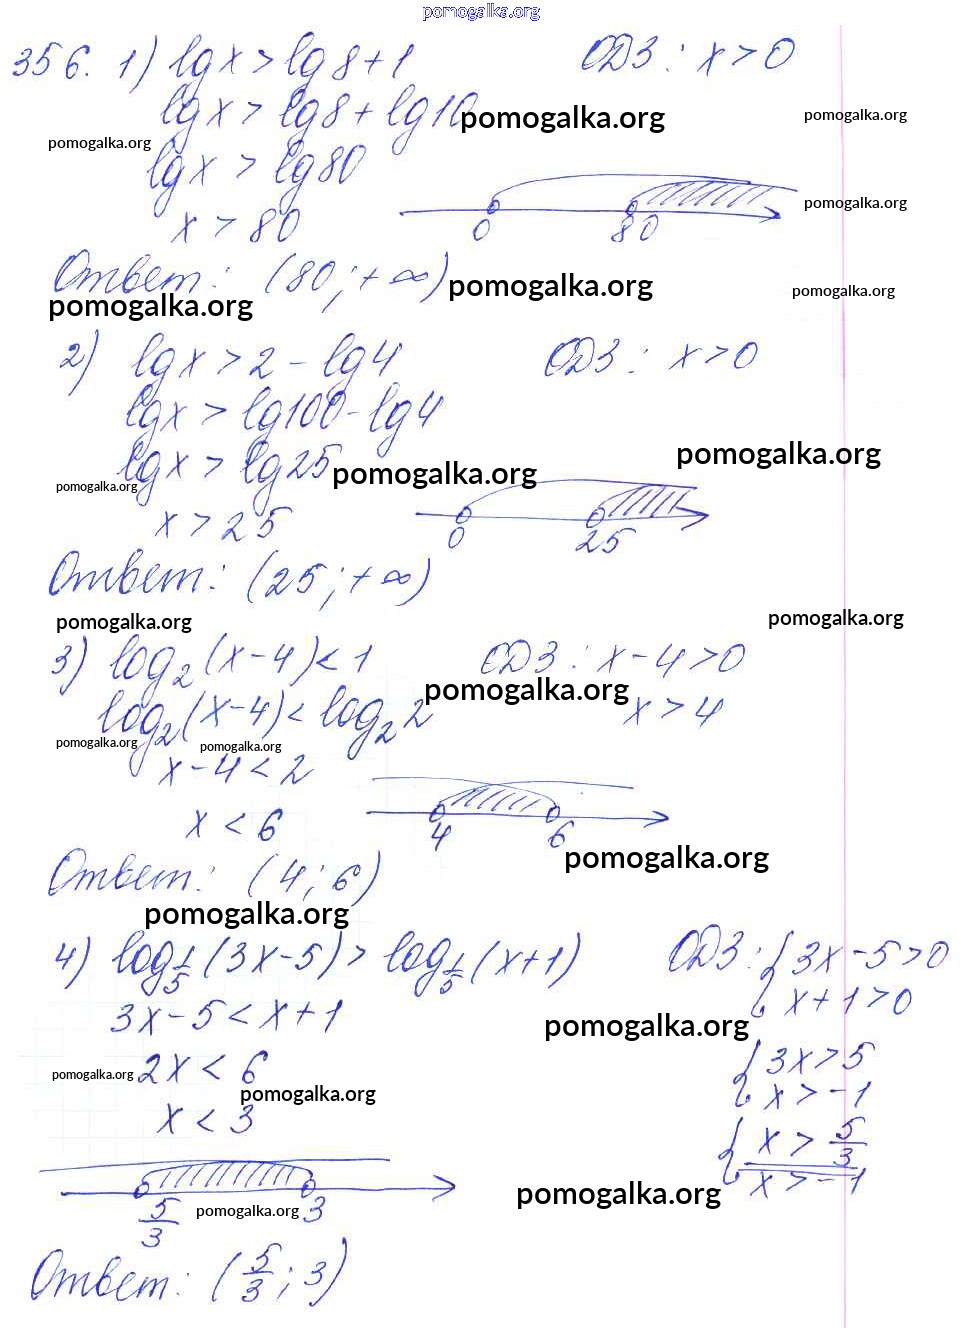 pomogalka.org
356. 1) lg x > lg 8 + 1 ОДЗ: x > 0
lg x > lg 8 + lg 10 pomogalka.org pomogalka.org
pomogalka.org
lg x > lg 80
pomogalka.org
x > 80 0 80
Ответ: (80; +∞) pomogalka.org pomogalka.org
pomogalka.org
2) lg x > 2 - lg 4 ОДЗ: x > 0
lg x > lg 100 - lg 4
lg x > lg 25 pomogalka.org pomogalka.org
pomogalka.org
x > 25 0 25
Ответ: (25; +∞)
pomogalka.org pomogalka.org
3) log₂(x-4) < 1 ОДЗ: x - 4 > 0
pomogalka.org
log₂(x-4) < log₂2 x > 4
pomogalka.org pomogalka.org
x - 4 < 2
x < 6 4 6
pomogalka.org
Ответ: (4; 6)
pomogalka.org
4) log_{1/5}(3x-5) > log_{1/5}(x+1) ОДЗ: { 3x - 5 > 0
x + 1 > 0
3x - 5 < x + 1 pomogalka.org
pomogalka.org 2x < 6 { 3x > 5
pomogalka.org x > -1
x < 3 { x > 5/3
x > -1
pomogalka.org
5/3 pomogalka.org 3
Ответ: (5/3; 3)